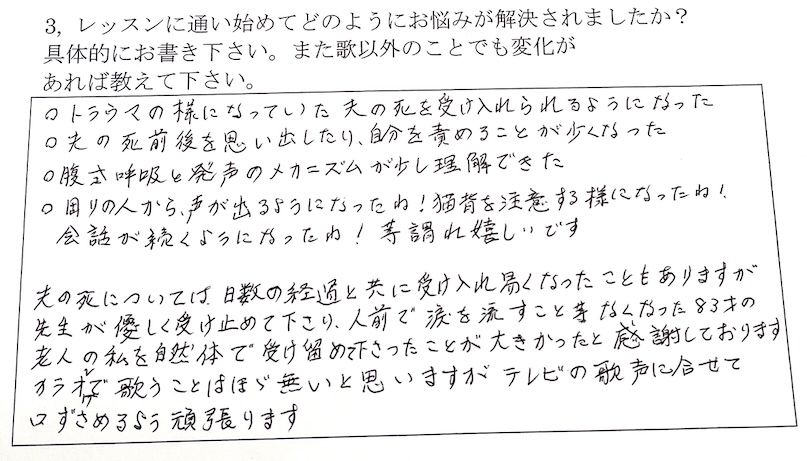 3, レッスンに通い始めてどのようにお悩みが解決されましたか？
具体的にお書き下さい。また歌以外のことでも変化が
あれば教えて下さい。
○トラウマの様になっていた 夫の死を受け入れられるようになった
○夫の死前後を思い出したり、自分を責めることが少くなった
○腹式呼吸と発声のメカニズムが少し理解できた
○周りの人から、声が出るようになったね！猫背を注意する様になったね！
会話が続くようになったね！等謂れ嬉しいです
夫の死については 日数の経過と共に受け入れ易くなったこともありますが
先生が優しく受け止めて下さり、人前で涙を流すこと等なくなった83才の
老人の私を自然体で受け留め下さったことが大きかったと感謝しております
カラオケで歌うことはほゞ無いと思いますがテレビの歌声に合せて
口ずさめるよう頑張ります